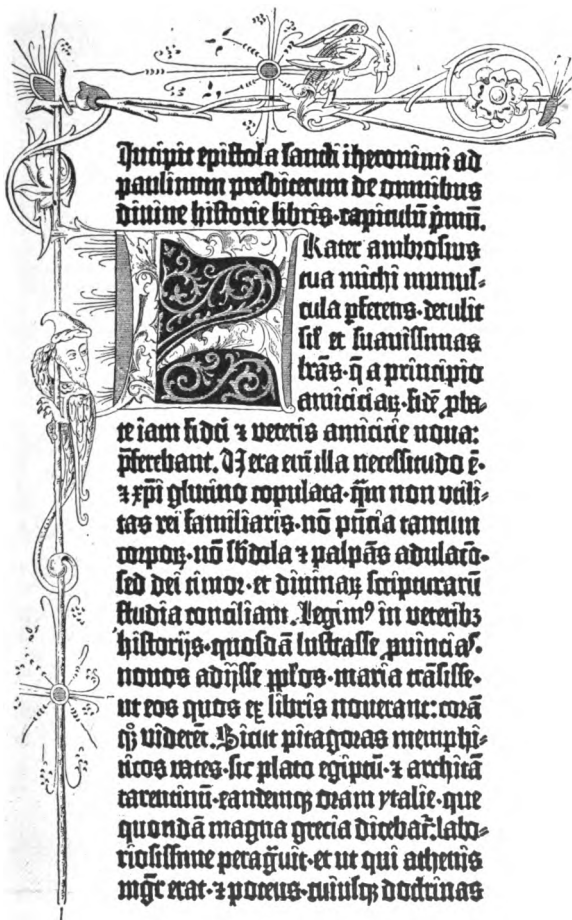 Incipit epistola sancti iheronimi ad
paulinum presbiterum de omnibus
diuine historie libris·capitulū p̄mū.
Frater ambrosius
tua michi munus-
cula ꝑferens·detulit
sil̄ et suauissimas
l̄ras·q̄ a principio
amiciciaꝝ·fidē ꝓba-
te iam fidei ⁊ veteris amicicie noua:
p̄ferebant. Uera eni illa necessitudo ē·
⁊ xp̄i glutino copulata·q̄m non vtili-
tas rei familiaris·nō p̄ncia tantum
corpoꝝ·nō sb̄dola ⁊ palpās adulacō·
sed dei timor·et diuinaꝝ scripturarū
studia conciliant. Legimꝰ in veteribꝫ
historijs·quosdā lustrasse ꝓuincias·
nouos adijsse ꝓplos·maria trāsisse·
ut eos quos ex libris nouerant: corā
qꝫ viderēt. Sicut pitagoras memphi-
ticos vates·sic plato egiptū·⁊ architā
tarentinū·eandemqꝫ oram ytalie·que
quondā magna grecia dicebat̄: labo-
riosissime peragͣuit·et ut qui athenis
mgr̄ erat·⁊ potens·cuiusqꝫ doctrinas